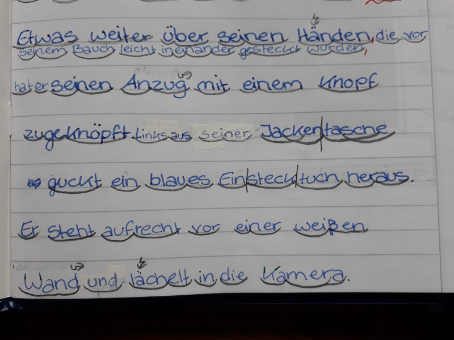 Etwas weiter über seinen Händen, die vor
seinem Bauch leicht ineinander gesteckt wurden,
hat er seinen Anzug mit einem Knopf
zugeknöpft. Links aus seiner Jackentasche
guckt ein blaues Einstecktuch heraus.
Er steht aufrecht vor einer weißen
Wand und lächelt in die Kamera.